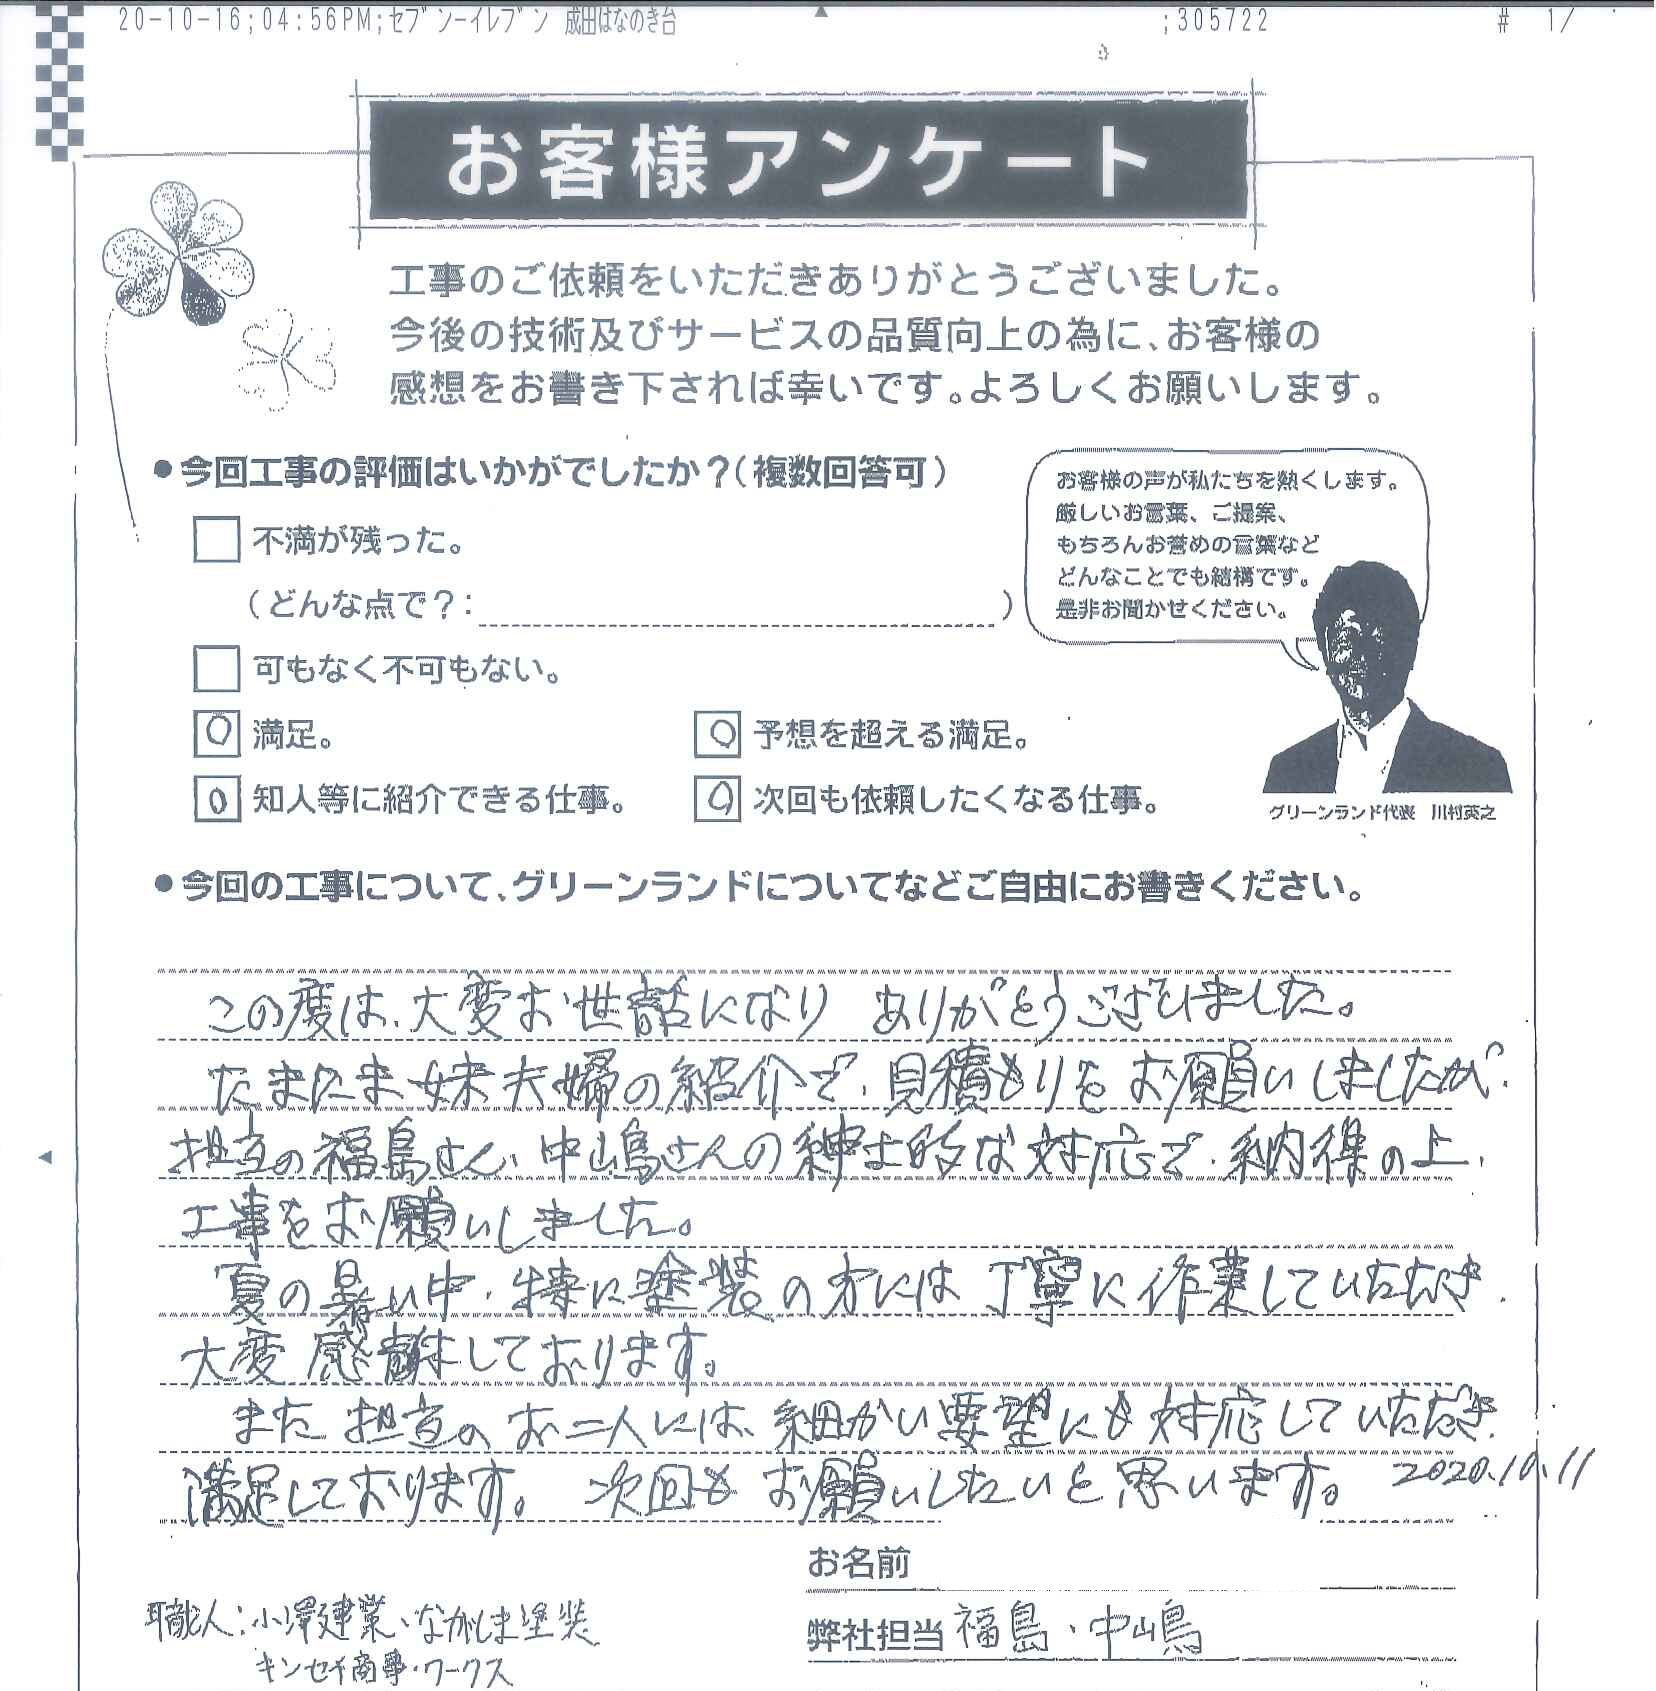 20-10-16;04:56PM;セブン-イレブン 成田はなのき台 ;305722 # 1/
お客様アンケート
工事のご依頼をいただきありがとうございました。
今後の技術及びサービスの品質向上の為に、お客様の
感想をお書き下されば幸いです。よろしくお願いします。
●今回工事の評価はいかがでしたか?(複数回答可)
不満が残った。
(どんな点で?: )
可もなく不可もない。
○ 満足。
○ 予想を超える満足。
○ 知人等に紹介できる仕事。
○ 次回も依頼したくなる仕事。
お客様の声が私たちを熱くします。
厳しいお言葉、ご提案、
もちろんお誉めの言葉など
どんなことでも結構です。
是非お聞かせください。
グリーンランド代表 川村英之
●今回の工事について、グリーンランドについてなどご自由にお書きください。
この度は、大変お世話になり ありがとうございました。
たまたま妹夫婦の紹介で、見積もりをお願いしましたが、
担当の福島さん、中山鳥さんの紳士的な対応で、納得の上、
工事をお願いしました。
夏の暑い中、特に塗装の方には丁寧に作業していただき、
大変感謝しております。
また担当のお二人には、細かい要望にも対応していただき、
満足しております。 次回もお願いしたいと思います。 2020.10.11
お名前
弊社担当 福島・中山鳥
職人:小澤建業、ながしま塗装
キンセキ商事・ワークス